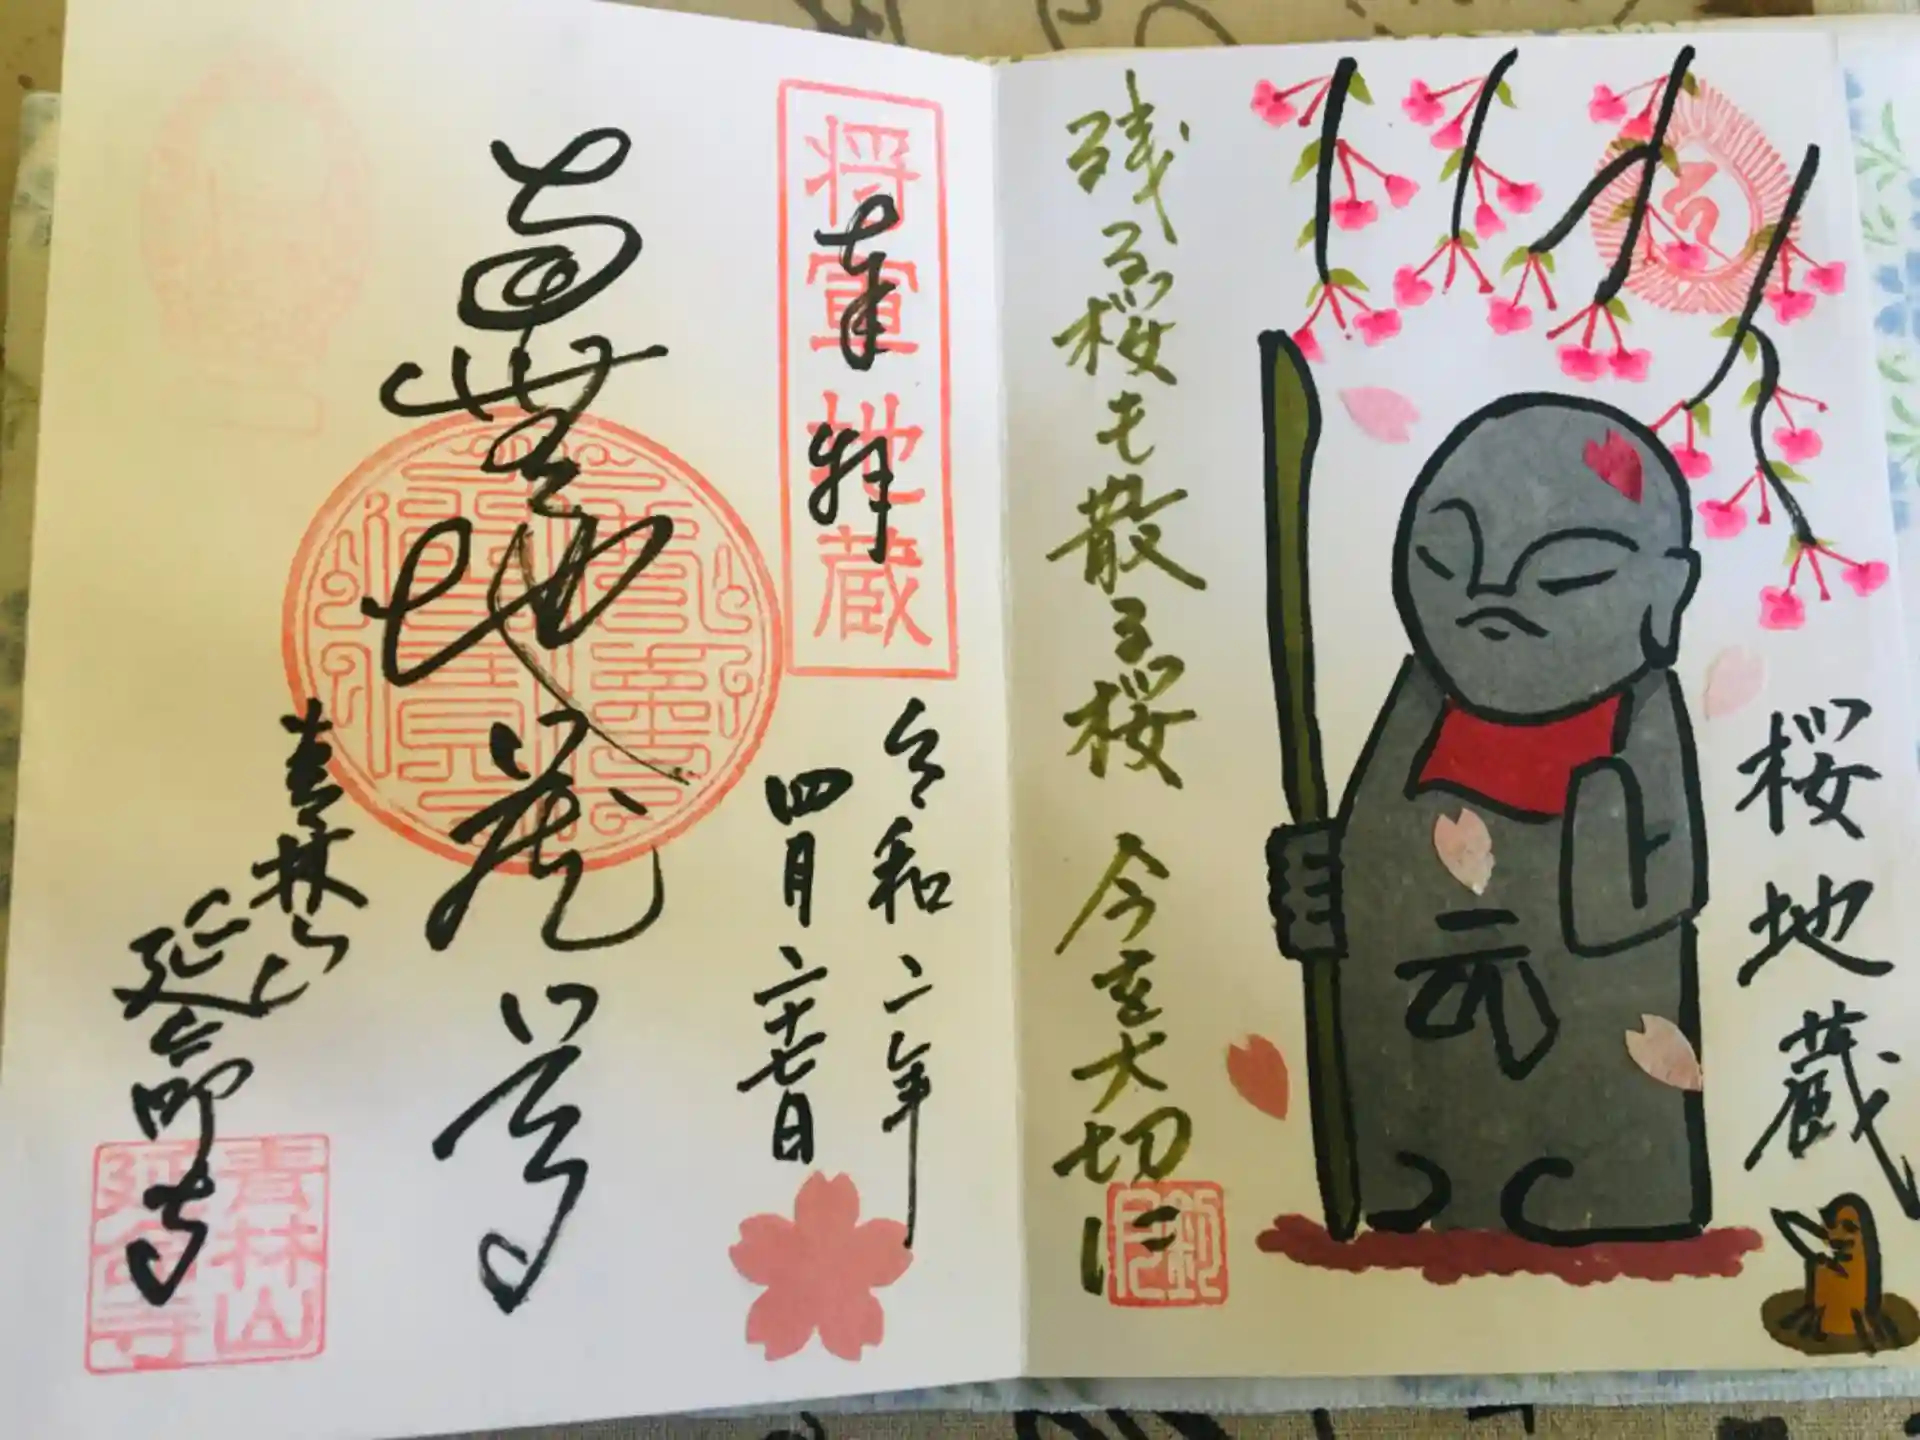 桜地蔵
残る桜も散る桜
今を大切に
将軍地蔵
奉拝
令和二年
四月二十七日
南無地蔵尊
青林山
延命寺
青林山
延命寺